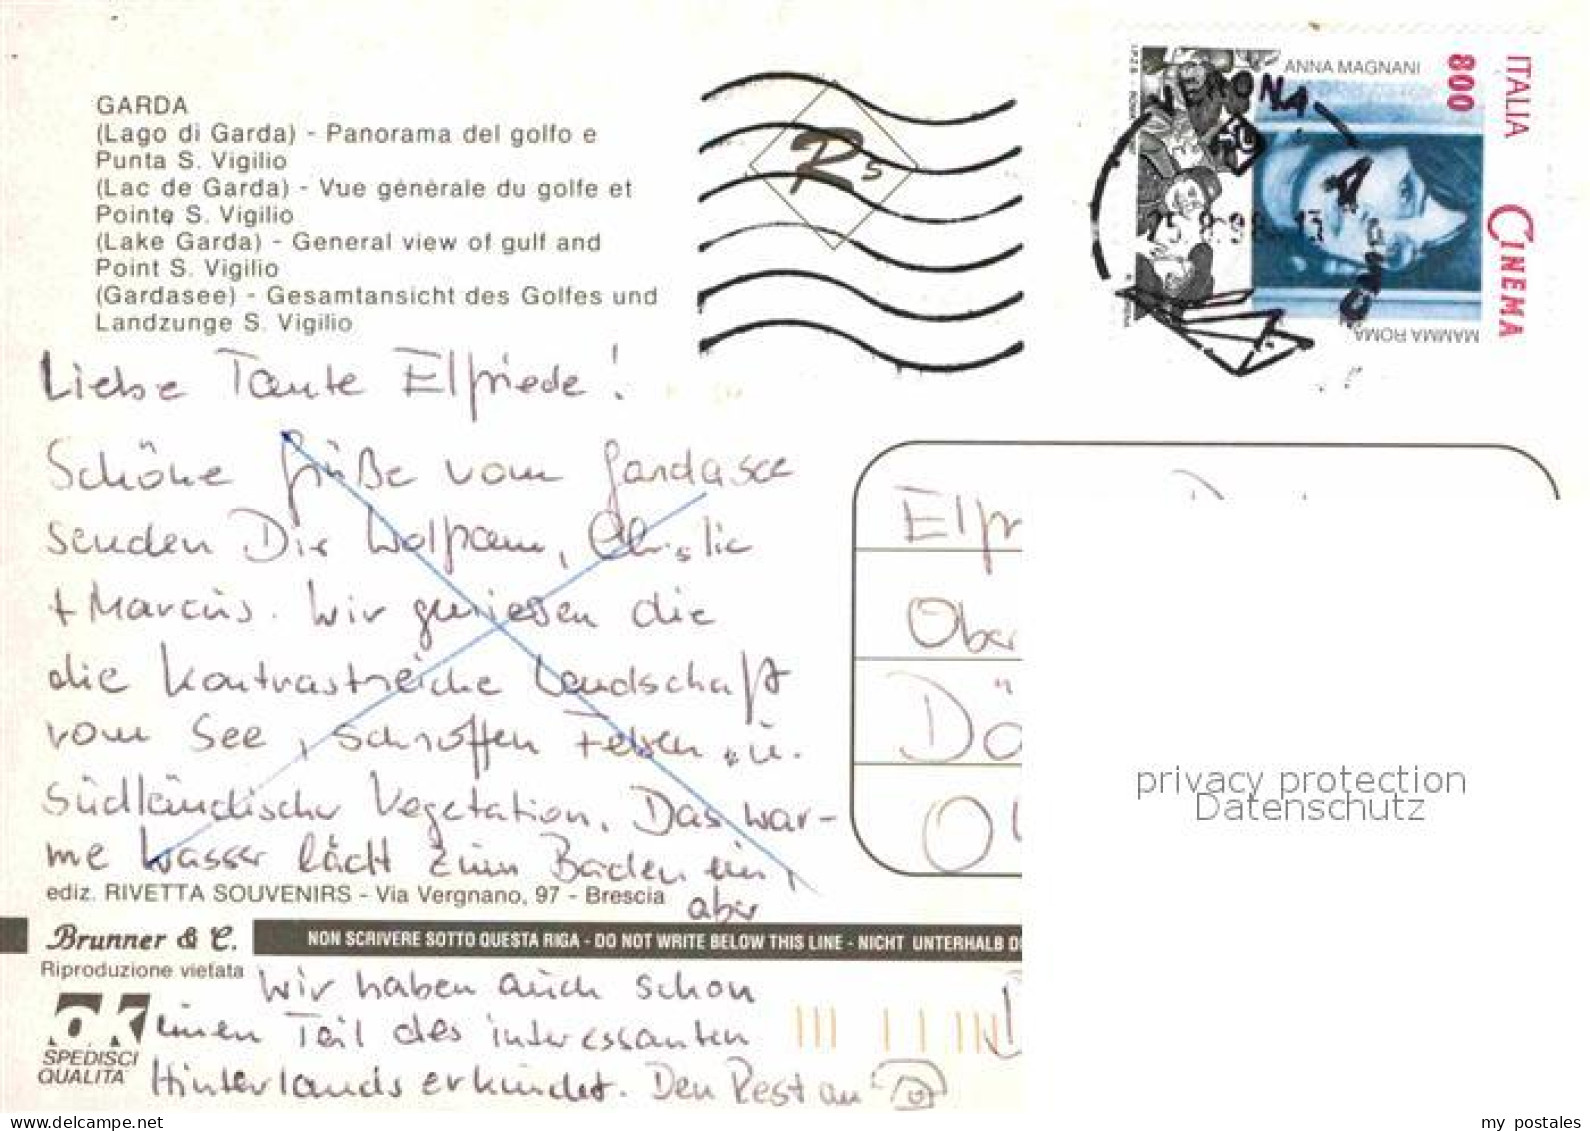 GARDA
(Lago di Garda) - Panorama del golfo e
Punta S. Vigilio
(Lac de Garda) - Vue génèrale du golfe et
Pointe S. Vigilio
(Lake Garda) - General view of gulf and
Point S. Vigilio
(Gardasee) - Gesamtansicht des Golfes und
Landzunge S. Vigilio
R5
VERONA
ANNA MAGNANI
800
ITALIA
CINEMA
MAMMA ROMA
Liebe Tante Elfriede!
Schöne Grüße vom Gardasee
senden Dir Wolfram, Christie
+ Marcus. Wir geniessen die
die kontrastreiche Landschaft
vom See, schroffen Felsen, u.
südländischer Vegetation. Das war-
me Wasser lädt zum Baden ein,
aber
ediz. RIVETTA SOUVENIRS - Via Vergnano, 97 - Brescia
Brunner & C.
NON SCRIVERE SOTTO QUESTA RIGA - DO NOT WRITE BELOW THIS LINE - NICHT UNTERHALB D
Riproduzione vietata
wir haben auch schon
einen Teil des interessanten
Hinterlands erkundet. Den Rest am
OK
SPEDISCI
QUALITA'
Elfr
Ober
Dö
privacy protection
Datenschutz
my postales